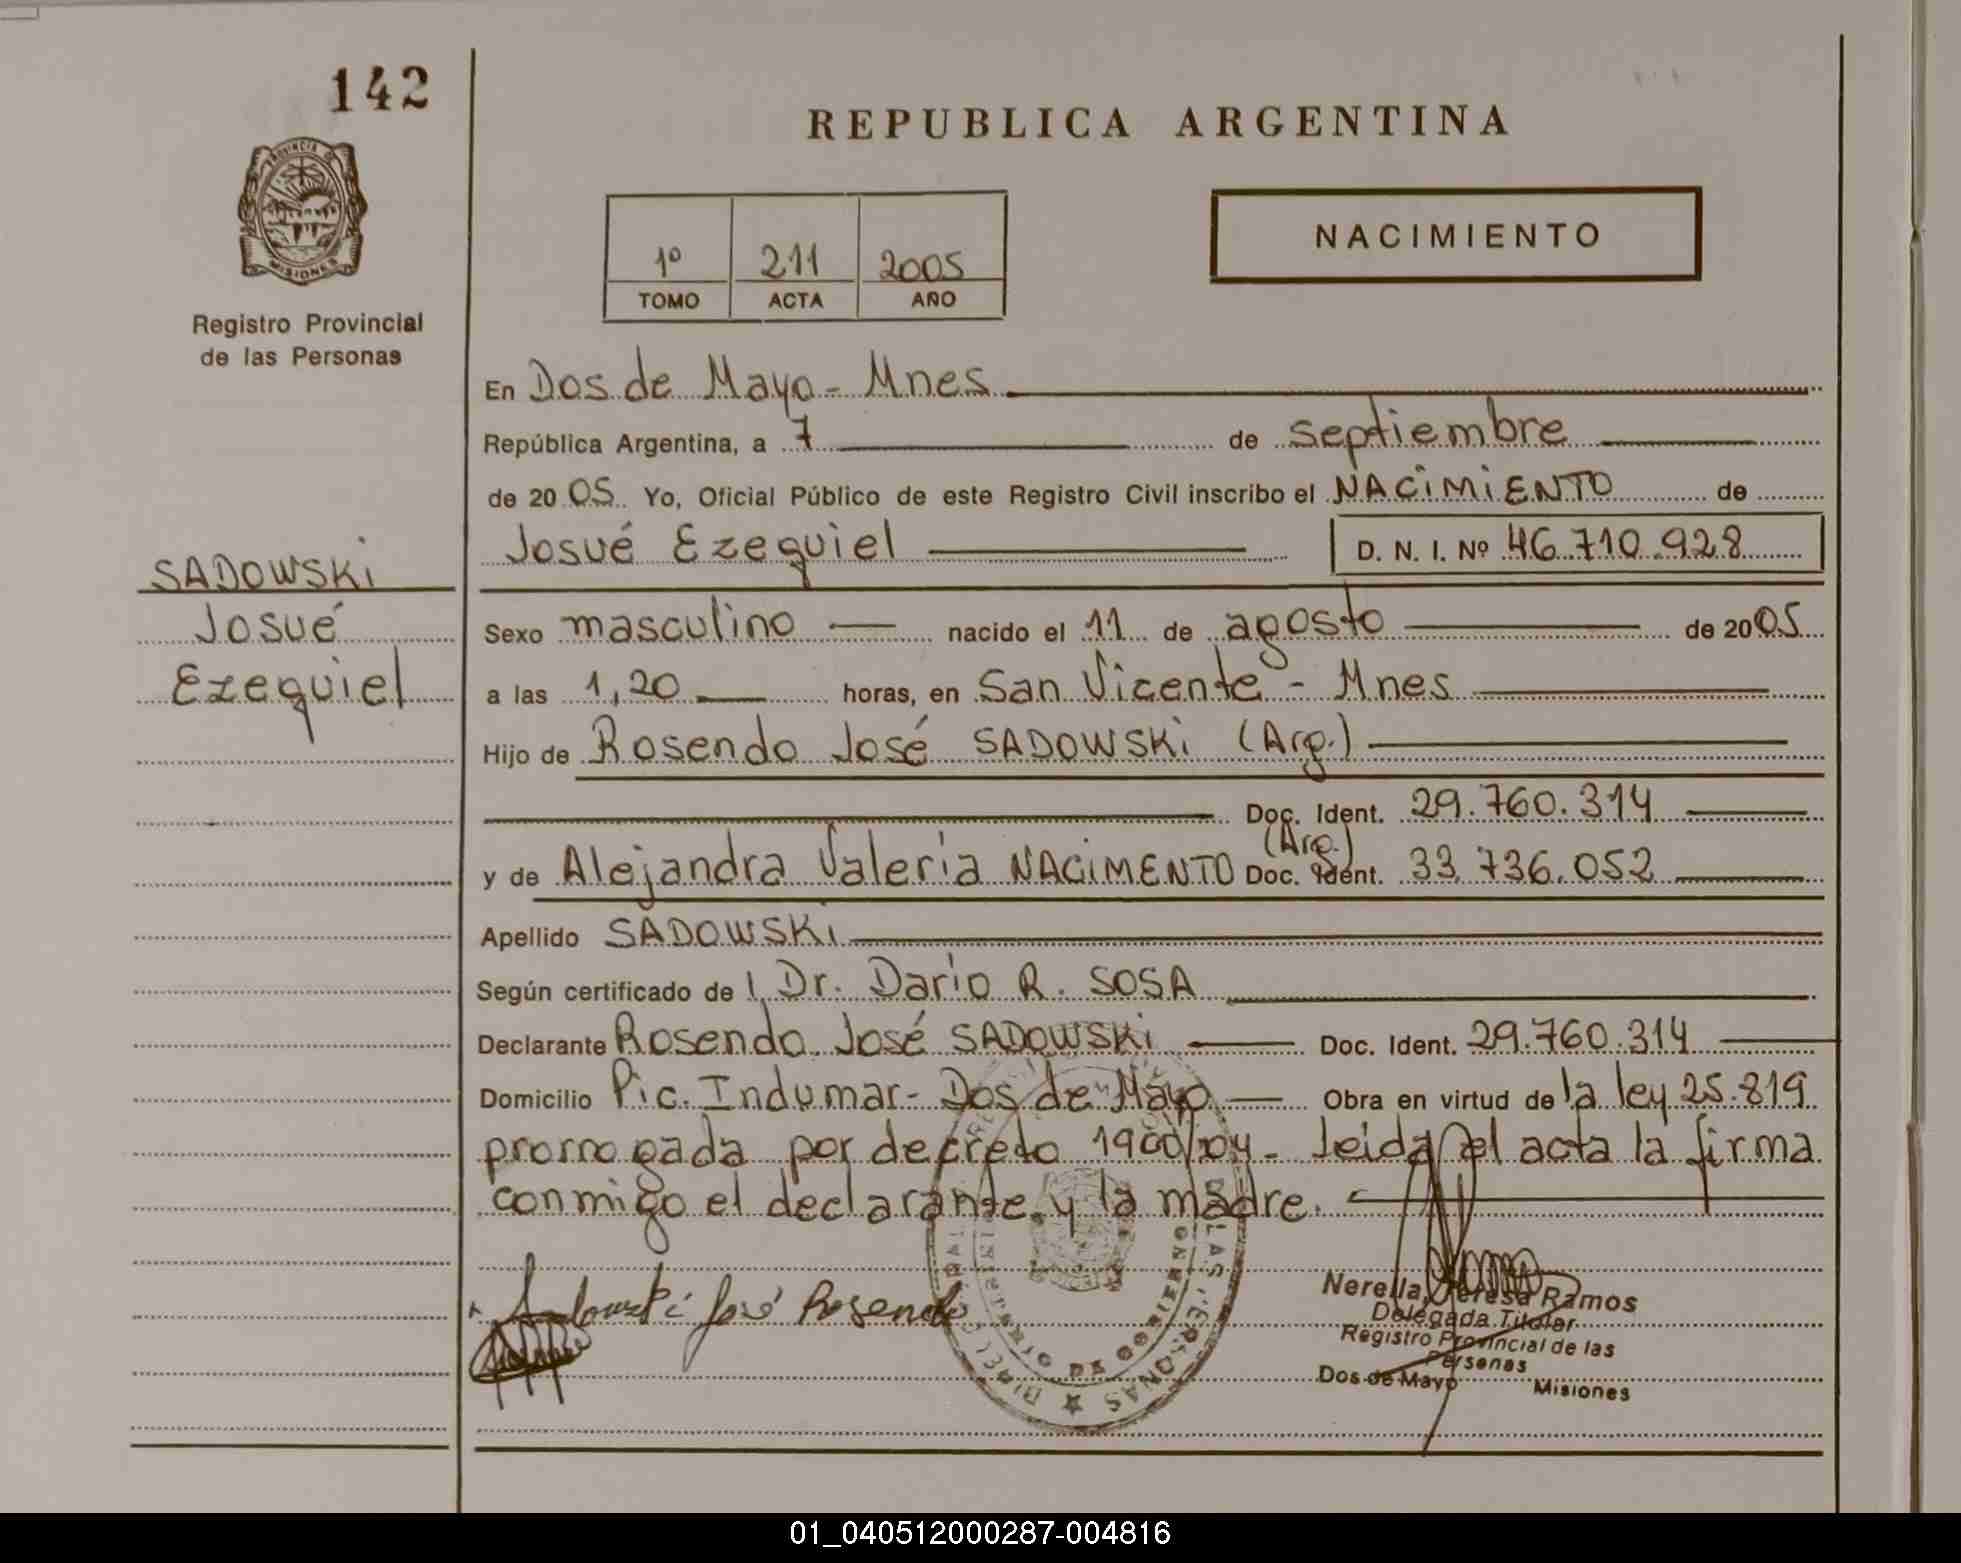 142
REPUBLICA ARGENTINA
PROVINCIA DE
MISIONES
Registro Provincial
de las Personas
1º 211 2005
TOMO ACTA AÑO
NACIMIENTO
En Dos de Mayo - Mnes
República Argentina, a 7 de septiembre
de 2005 Yo, Oficial Público de este Registro Civil inscribo el NACIMIENTO de
Josué Ezequiel D. N. I. Nº 46.710.928
SADOWSKi
Josué
Ezequiel
Sexo masculino nacido el 11 de agosto de 2005
a las 1,20 horas, en San Vicente - Mnes
Hijo de Rosendo José SADOWSKi (Arg.)
Doc. Ident. 29.760.314
(Arg.)
y de Alejandra Valeria NACIMENTO Doc. Ident. 33.736.052
Apellido SADOWSKi
Según certificado de l Dr. Darío R. SOSA
Declarante Rosendo José SADOWSKi Doc. Ident. 29.760.314
Domicilio Pic. Indumar - Dos de Mayo Obra en virtud de la ley 25.819
prorrogada por decreto 1900/04 - leida el acta la firma
conmigo el declarante y la madre.
Sadowski José Rosendo
Nerella Teresa Ramos
Delegada Titular
Registro Provincial de las
Personas
Dos de Mayo Misiones
01_040512000287-004816